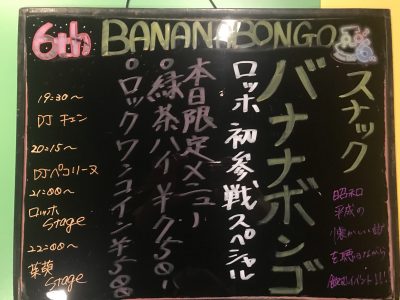 6th BANANABONGO
スナック
バナナボンゴ
昭和
平成の
懐かしい曲
を聴きながら
飲むイベント!!!
ロッホ 初参戦スペシャル
本日限定メニュー
○緑茶ハイ ¥750!
○ロックワンコイン ¥508
19:30〜
DJ チェン
20:15〜
DJペコリーヌ
21:00〜
ロッホ
stage
22:00〜
Stage